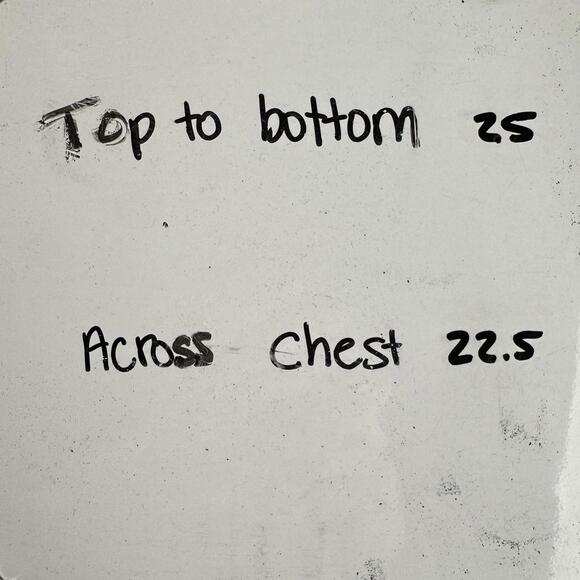 Top to bottom 25
Across Chest 22.5